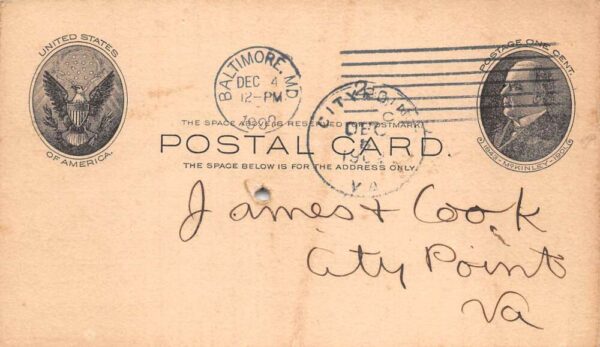 UNITED STATES
OF AMERICA.
BALTIMORE, MD
DEC 4
12-PM
1902
CITY POINT
DEC
5
VA
POSTAGE ONE CENT.
1843-McKINLEY-1901
THE SPACE ABOVE IS RESERVED FOR POSTMARK.
POSTAL CARD.
THE SPACE BELOW IS FOR THE ADDRESS ONLY.
James + Cook
City Point
Va